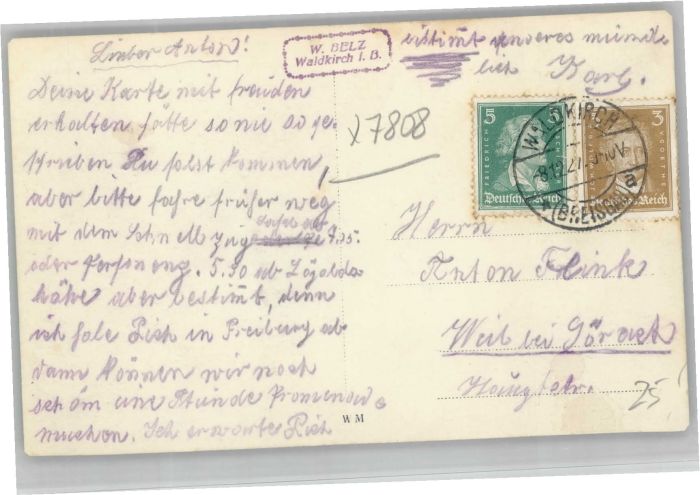 Lieber Anton!
Deine Karte mit freuden
erhalten hätte sonie so ge-
schrieben Du solst kommen
aber bitte fahre früher weg
mit dem Schnellzug 4.35.
oder Personeng. 5.30 ab
aber bestimt, denn
ich hole Dich in Freiburg ab
dann können wir noch
schön eine Stunde Promenade
machen. Ich erwarte Dich
bestimt anderes münd-
lich Karl.
W. BELZ
Waldkirch i. B.
x7808
5 5
FRIEDRICH
Deutsches Reich
3
Deutsches Reich
WALDKIRCH
(BREISGAU)
a
Herrn
Anton Flink
Weil bei Lörach
Hauptstr.
25
W M